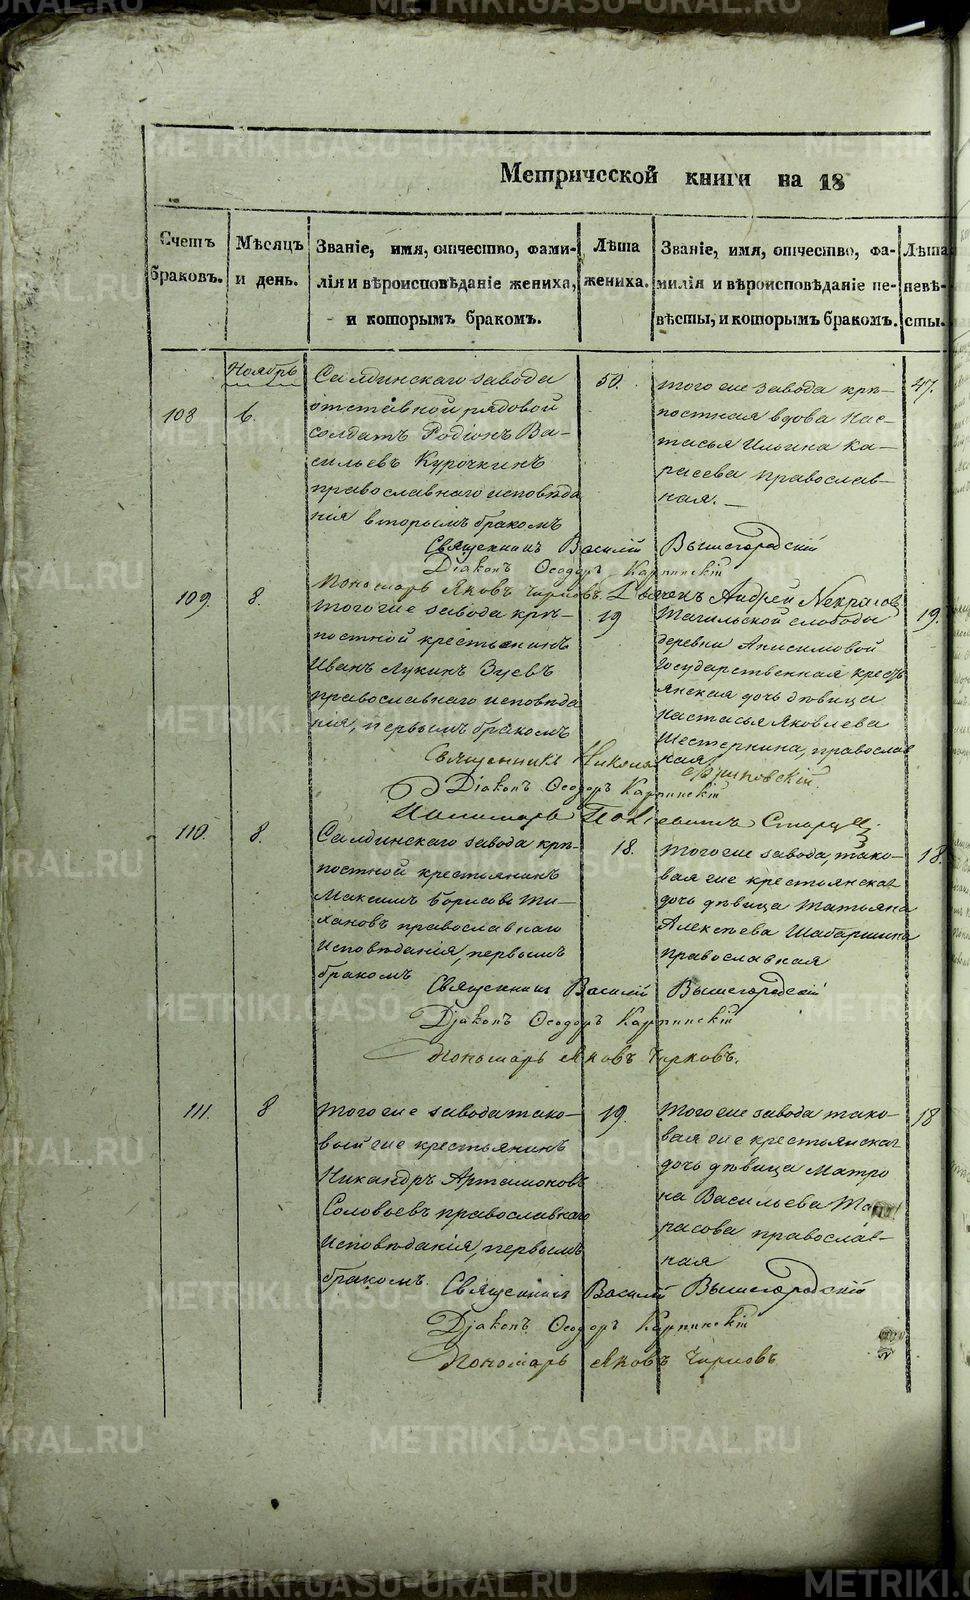 Метрической книги на 18
Счетъ браковъ.
Мѣсяцъ и день.
Званіе, имя, отчество, фами-
лія и вѣроисповѣданіе жениха,
и которымъ бракомъ.
Лѣта жениха.
Званіе, имя, отчество, фа-
милія и вѣроисповѣданіе не-
вѣсты, и которымъ бракомъ.
Лѣта невѣ-
сты.
Ноябрь
108
6.
Салдинскаго завода
отставной рядовой
солдатъ Родіонъ Ва-
сильевъ Курочкинъ
православнаго исповѣда
нія вторымъ бракомъ
50.
того же завода крѣ-
постная вдова Нас-
тасья Ильина Ка-
расева православ-
ная.
47.
Священникъ Василій Вышегородскій
Діаконъ Ѳеодоръ Карпинскій
Пономарь Яковъ Чирковъ. Андрей Некрасов
109.
8.
Тогоже завода крѣ-
постной крестьянинъ
Иванъ Лукинъ Зуевъ
православнаго исповѣда
нія, первымъ бракомъ
19
Тагильской слободы
деревни Анисимовой
Государственная кресть
янская дочь дѣвица
Настасья Яковлева
Шестеркина, православ
ная
19.
Священникъ Никола
Діаконъ Ѳеодоръ Карпинскій
Пономарь
110.
8.
Салдинскаго завода крѣ-
постной крестьянинъ
Максимъ Борисовъ Ти-
хановъ православнаго
исповѣданія, первымъ
бракомъ
18.
тогоже завода тако-
вая же крестьянская
дочь дѣвица Татьяна
Алексѣева Шабаршина
православная
18.
Священникъ Василій Вышегородскій
Діаконъ Ѳеодоръ Карпинскій
Пономарь Яковъ Чирковъ.
111.
8
Тогоже завода тако-
вый же крестьянинъ
Никандръ Артамоновъ
Соловьевъ православнаго
исповѣданія, первымъ
бракомъ.
19.
Тогоже завода тако-
вая же крестьянская
дочь дѣвица Матро
на Васильева Та
расова православ-
ная
18
Священникъ Василій Вышегородскій
Діаконъ Ѳеодоръ Карпинскій
Пономарь Яковъ Чирковъ
METRIKI.GASO-URAL.RU